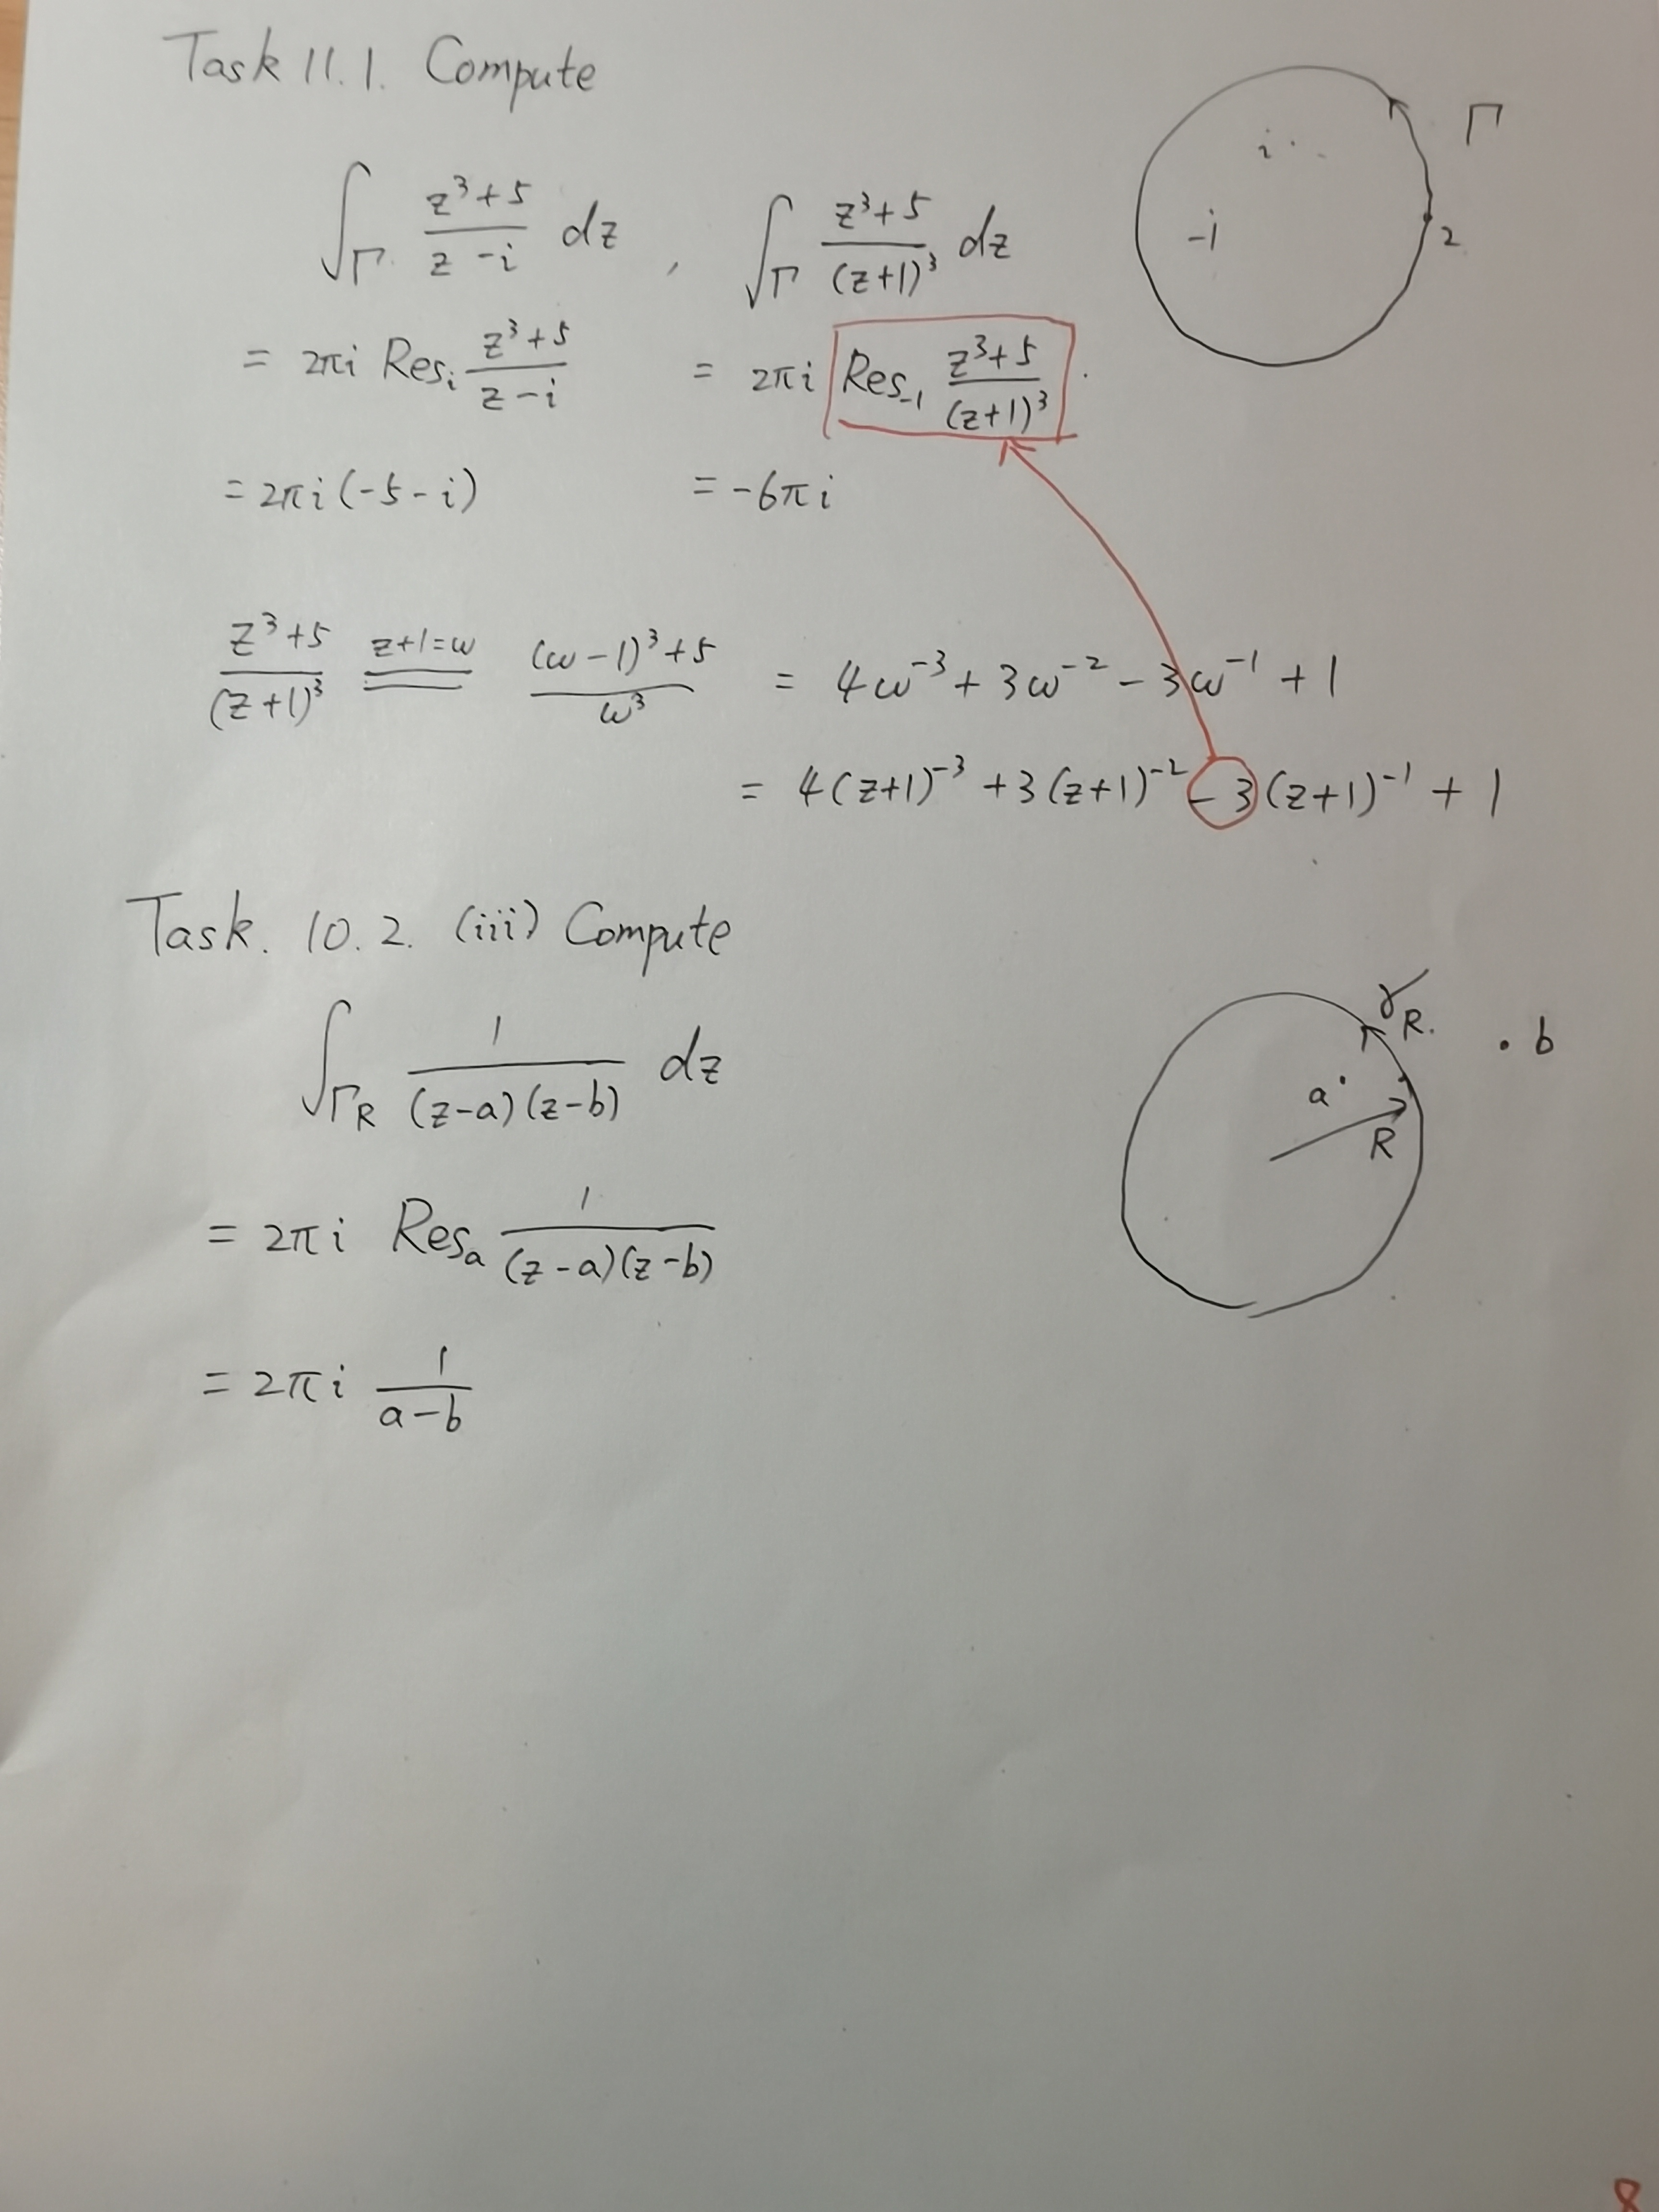 Task 11.1. Compute
∫_Γ (z³+5)/(z-i) dz , ∫_Γ (z³+5)/(z+1)³ dz
= 2πi Res_i (z³+5)/(z-i) = 2πi Res_-1 (z³+5)/(z+1)³ .
= 2πi (-5-i) = -6πi
Γ
i
-1
2
(z³+5)/(z+1)³ z+1=ω == ((ω-1)³+5)/ω³ = 4ω⁻³ + 3ω⁻² - 3ω⁻¹ + 1
= 4(z+1)⁻³ + 3(z+1)⁻² - 3(z+1)⁻¹ + 1
Task. 10.2. (iii) Compute
∫_Γ_R 1/((z-a)(z-b)) dz
= 2πi Res_a 1/((z-a)(z-b))
= 2πi 1/(a-b)
γ_R.
b
a
R
8